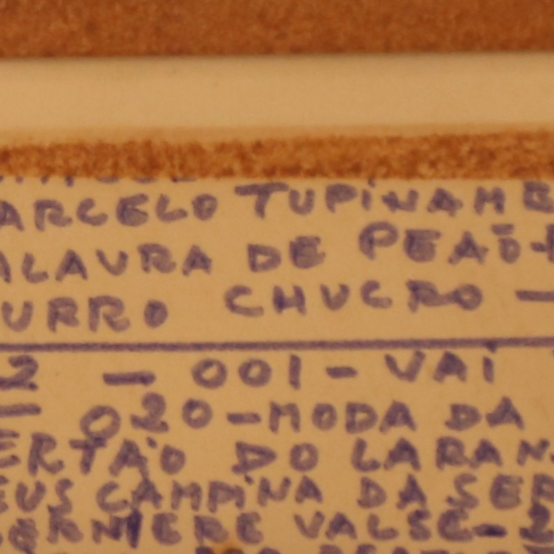 ARCELO TUPINAMB
ALAVRA DE PEÃO-
URRO CHUCRO —
2 — 001 - VAI
— 020 - MODA DA
ERTÃO DO LARAN
EUS CAMPINA DA SER
DERNIERE VALSE - 2